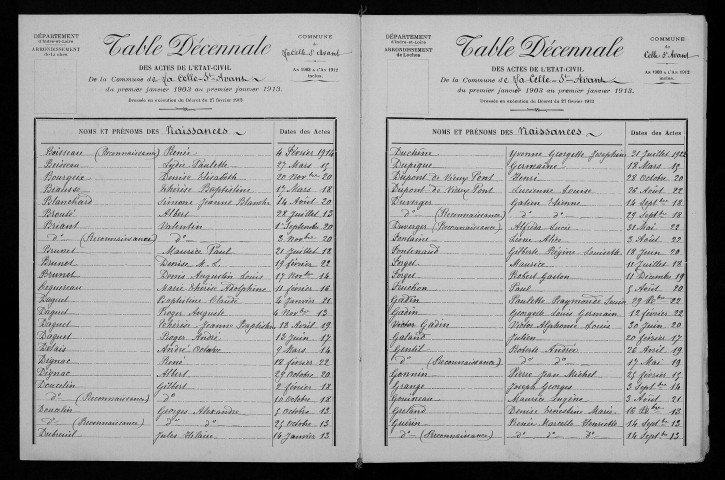 DÉPARTEMENT
d'Indre-et-Loire
ARRONDISSEMENT
de Loches
Table Décennale
COMMUNE
de
La Celle St Avant
DES ACTES DE L'ETAT-CIVIL
An 1903 à l'An 1912
inclus.
De la Commune de La Celle-St-Avant
du premier janvier 1903 au premier janvier 1913.
Dressée en exécution du Décret du 27 février 1912
NOMS ET PRÉNOMS DES Naissances Dates des Actes
Boisseau (Reconnaissance) Renée 4 Février 1914
Buisseau Lydie Paulette 27 Mars 12
Bourgoin Denise Elisabeth 20 Nov bre 20
Thérèse Baptistine 17 Mars 18
Blanchard Simone Jeanne Blanche 14 Août 20
Broute Albert 28 Juillet 13
Briant Valentin 1er Septembre 20
do (Reconnaissance) do 3 Nov bre 20
Brunet Maurice Paul 21 Juillet 18
Brunet Denise M. L. 19 février 22
Brunet Denis Augustin Louis 17 Nov bre 14
Marie Thérèse Adolphine 11 février 16
Daguet Baptistine Claude 4 Janvier 21
Daguet Roger Auguste 4 Nov bre 13
Daguet Thérèse Jeanne Baptistine 13 Avril 19
Daguet Roger André 13 Juin 17
Delais André Octave 9 Mars 14
Dignac René 18 février 22
Dignac Albert 29 Octobre 20
Doucelin Gilbert 2 février 18
do (Reconnaissance) do 10 Octobre 18
Doucelin Georges Alexandre 5 Octobre 13
do (Reconnaissance) do do 25 Octobre 13
Dubreuil Jules Hilaire 14 Janvier 13
DÉPARTEMENT
d'Indre-et-Loire
ARRONDISSEMENT
de Loches
Table Décennale
COMMUNE
de
Celle St Avant
DES ACTES DE L'ETAT-CIVIL
An 1903 à l'An 1912
inclus.
De la Commune de La Celle-St-Avant
du premier janvier 1903 au premier janvier 1913.
Dressée en exécution du Décret du 27 février 1912
NOMS ET PRÉNOMS DES Naissances Dates des Actes
Duchêne Yvonne Georgette Joséphine 31 Juillet 1922
Dupique Germaine 18 Mars 12
Dupont de Vieux Pont Henri 28 Octobre 20
Dupont de Vieux Pont Lucienne Louise 26 Août 22
Duverger Gatien Etienne 14 Sept bre 18
do (Reconnaissance) do do 29 Sept bre 18
Duverger (Reconnaissance) Alfréda Lucie 31 Mai 22
Fontaine Léone Alice 3 Août 22
Fontenaud Gilberte Régine 18 Juin 20
Forget Maurice 11 Juillet 18
Forget Robert Gaston 11 Décembre 19
Fouchon Paul 8 Août 20
Gadin Paulette Raymonde 29 Nbre 22
Gadin Georgette Louis Germain 12 février 22
Victor Gadin Victor Alphonse Louis 30 Juin 20
Galand Julien 20 février 17
Gentil Roberte Andrée 26 Avril 19
do (Reconnaissance) do do 17 Mai 19
Gonnin Pierre Jean Michel 25 février 15
Grange Joseph Georges 3 Sept bre 14
Gouineau Maurice Eugène 3 Août 21
Denise Ernestine Marie 16 Xbre 13
Guérin Renée Marcelle Henriette 14 Sept bre 13
do (Reconnaissance) do do do 14 Sept bre 13